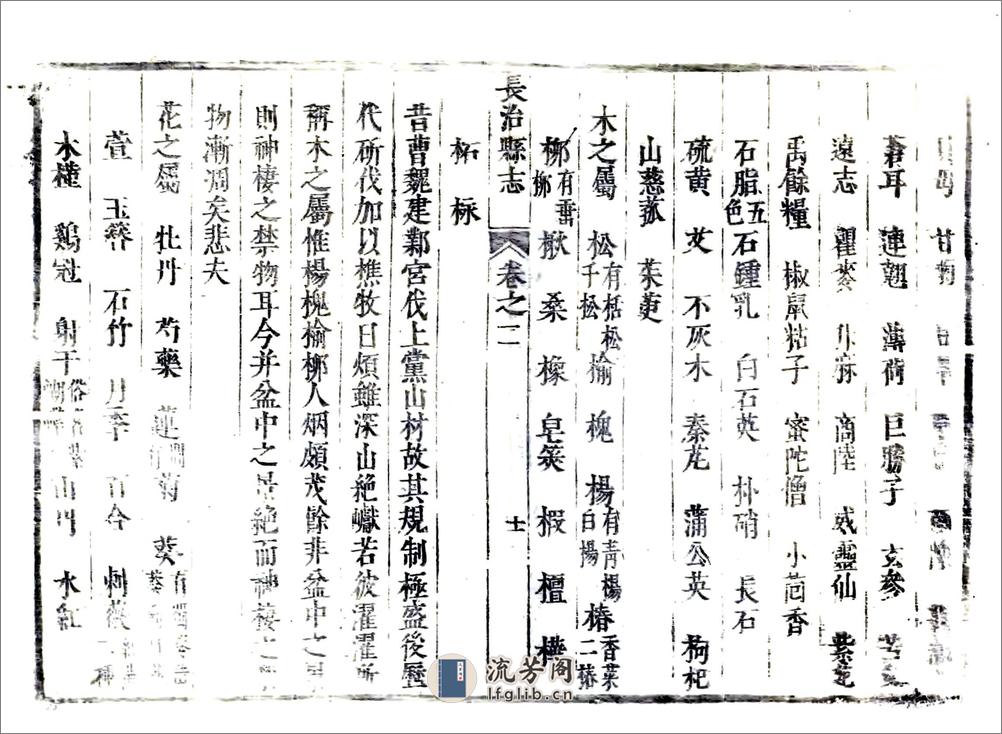 甘菊
蒼耳 連翹 薄荷 巨勝子 玄參 苦
遠志 瞿麥 升麻 商陸 威靈仙 紫菀
禹餘糧 椒 鼠粘子 蜜陀僧 小茴香
石脂五色 石鍾乳 白石英 朴硝 長石
硫黄 艾 不灰木 秦艽 蒲公英 枸杞
山慈菰 茱萸
木之屬 松有栝松千松 榆 槐 楊有青楊白楊 椿香菜二椿
柳有雷柳 楸 桑 橡 皂莢 椵 檀 樺
長治縣志 卷之二 十
柘 栎
昔曹魏建鄴宮伐上黨山材故其規制極盛後歷
代斫伐加以樵牧日煩雖深山絶巘若彼濯濯所
稱木之屬惟楊槐榆柳人烟頗茂餘非盆中之
則神棲之禁物耳今并盆中之景絶而神棲之
物漸凋矣悲夫
花之屬 牡丹 芍藥 蓮 菊 葵
萱 玉簪 石竹 月季 百合 刺薇
木槿 鷄冠 射干 山丹 水紅
流芳阁
lfglib.cn